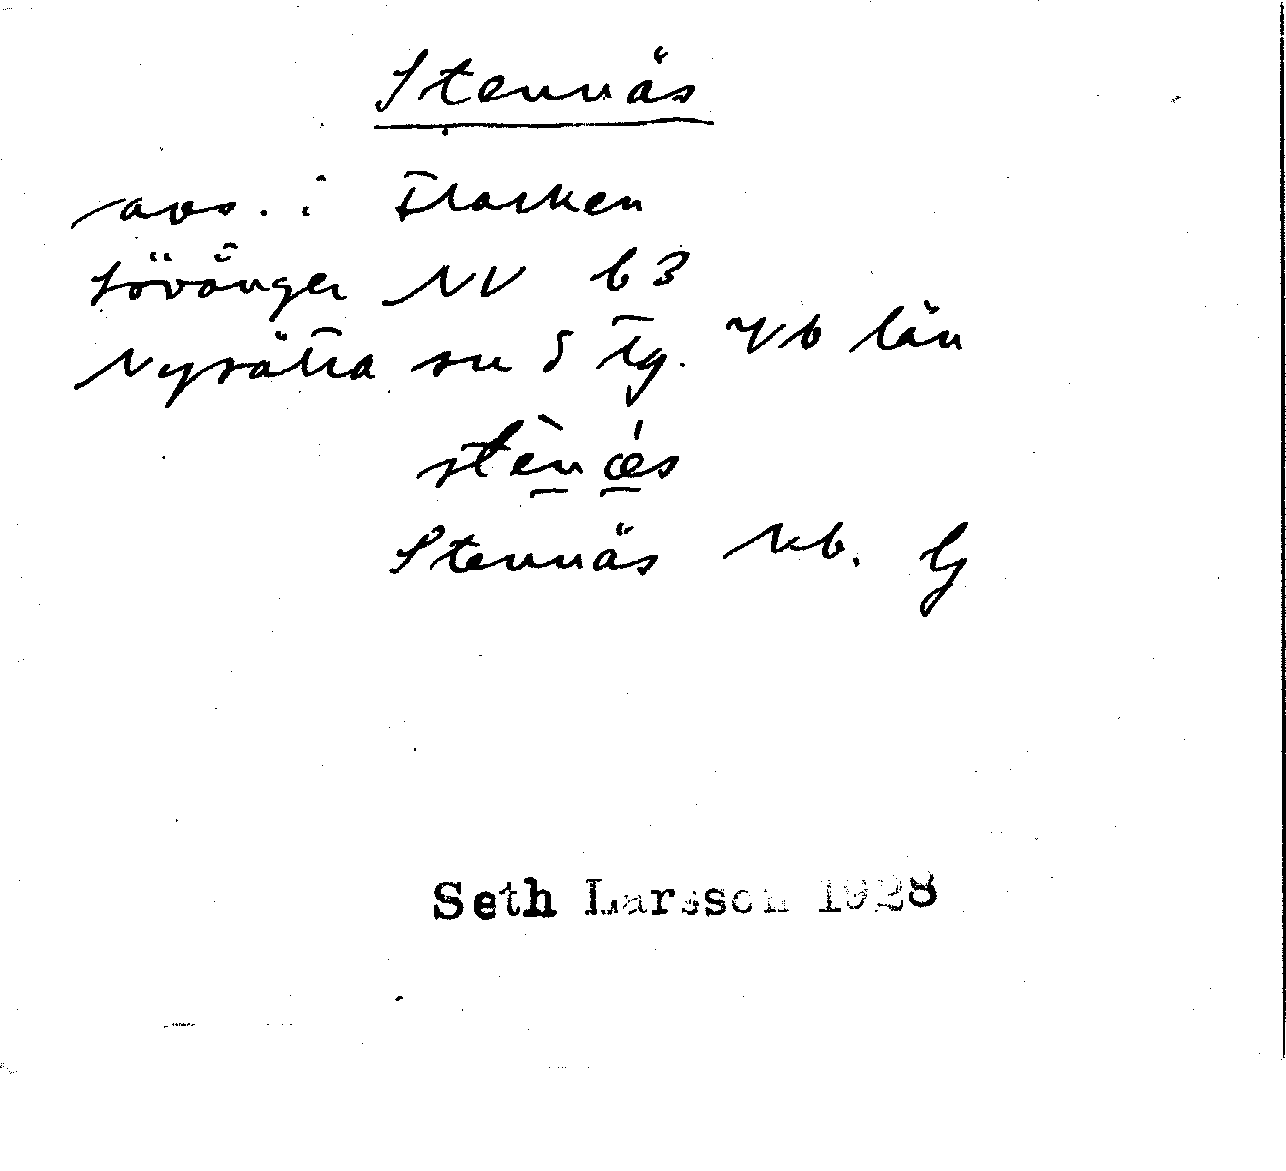 Stennäs
avs. i Flarken
Lövånger NV b3
Nysätra sn S tg. Vb län
stènǽs
Stennäs kb.
Seth Larsson 1928